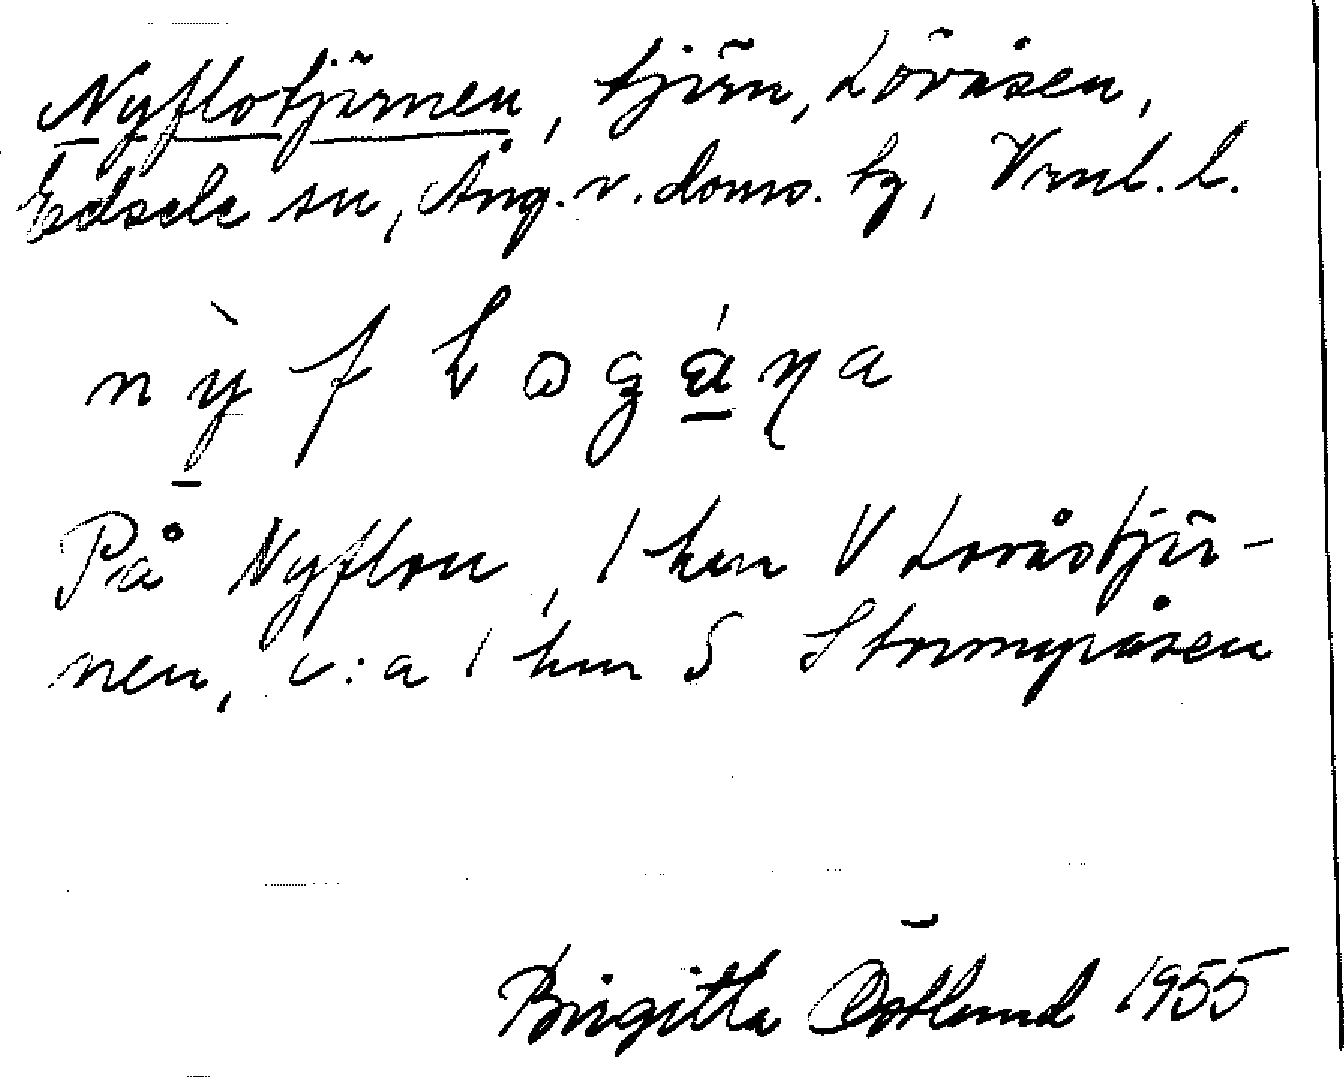 Nyflotjärnen, tjärn, Lövåsen,
Edsele sn, Ång. v. doms. tg, Vrnl. l.
På Nyflon, 1 km V Lovåstjär-
nen, c:a 1 km S Stormyråsen
Birgitta Östlund 1955